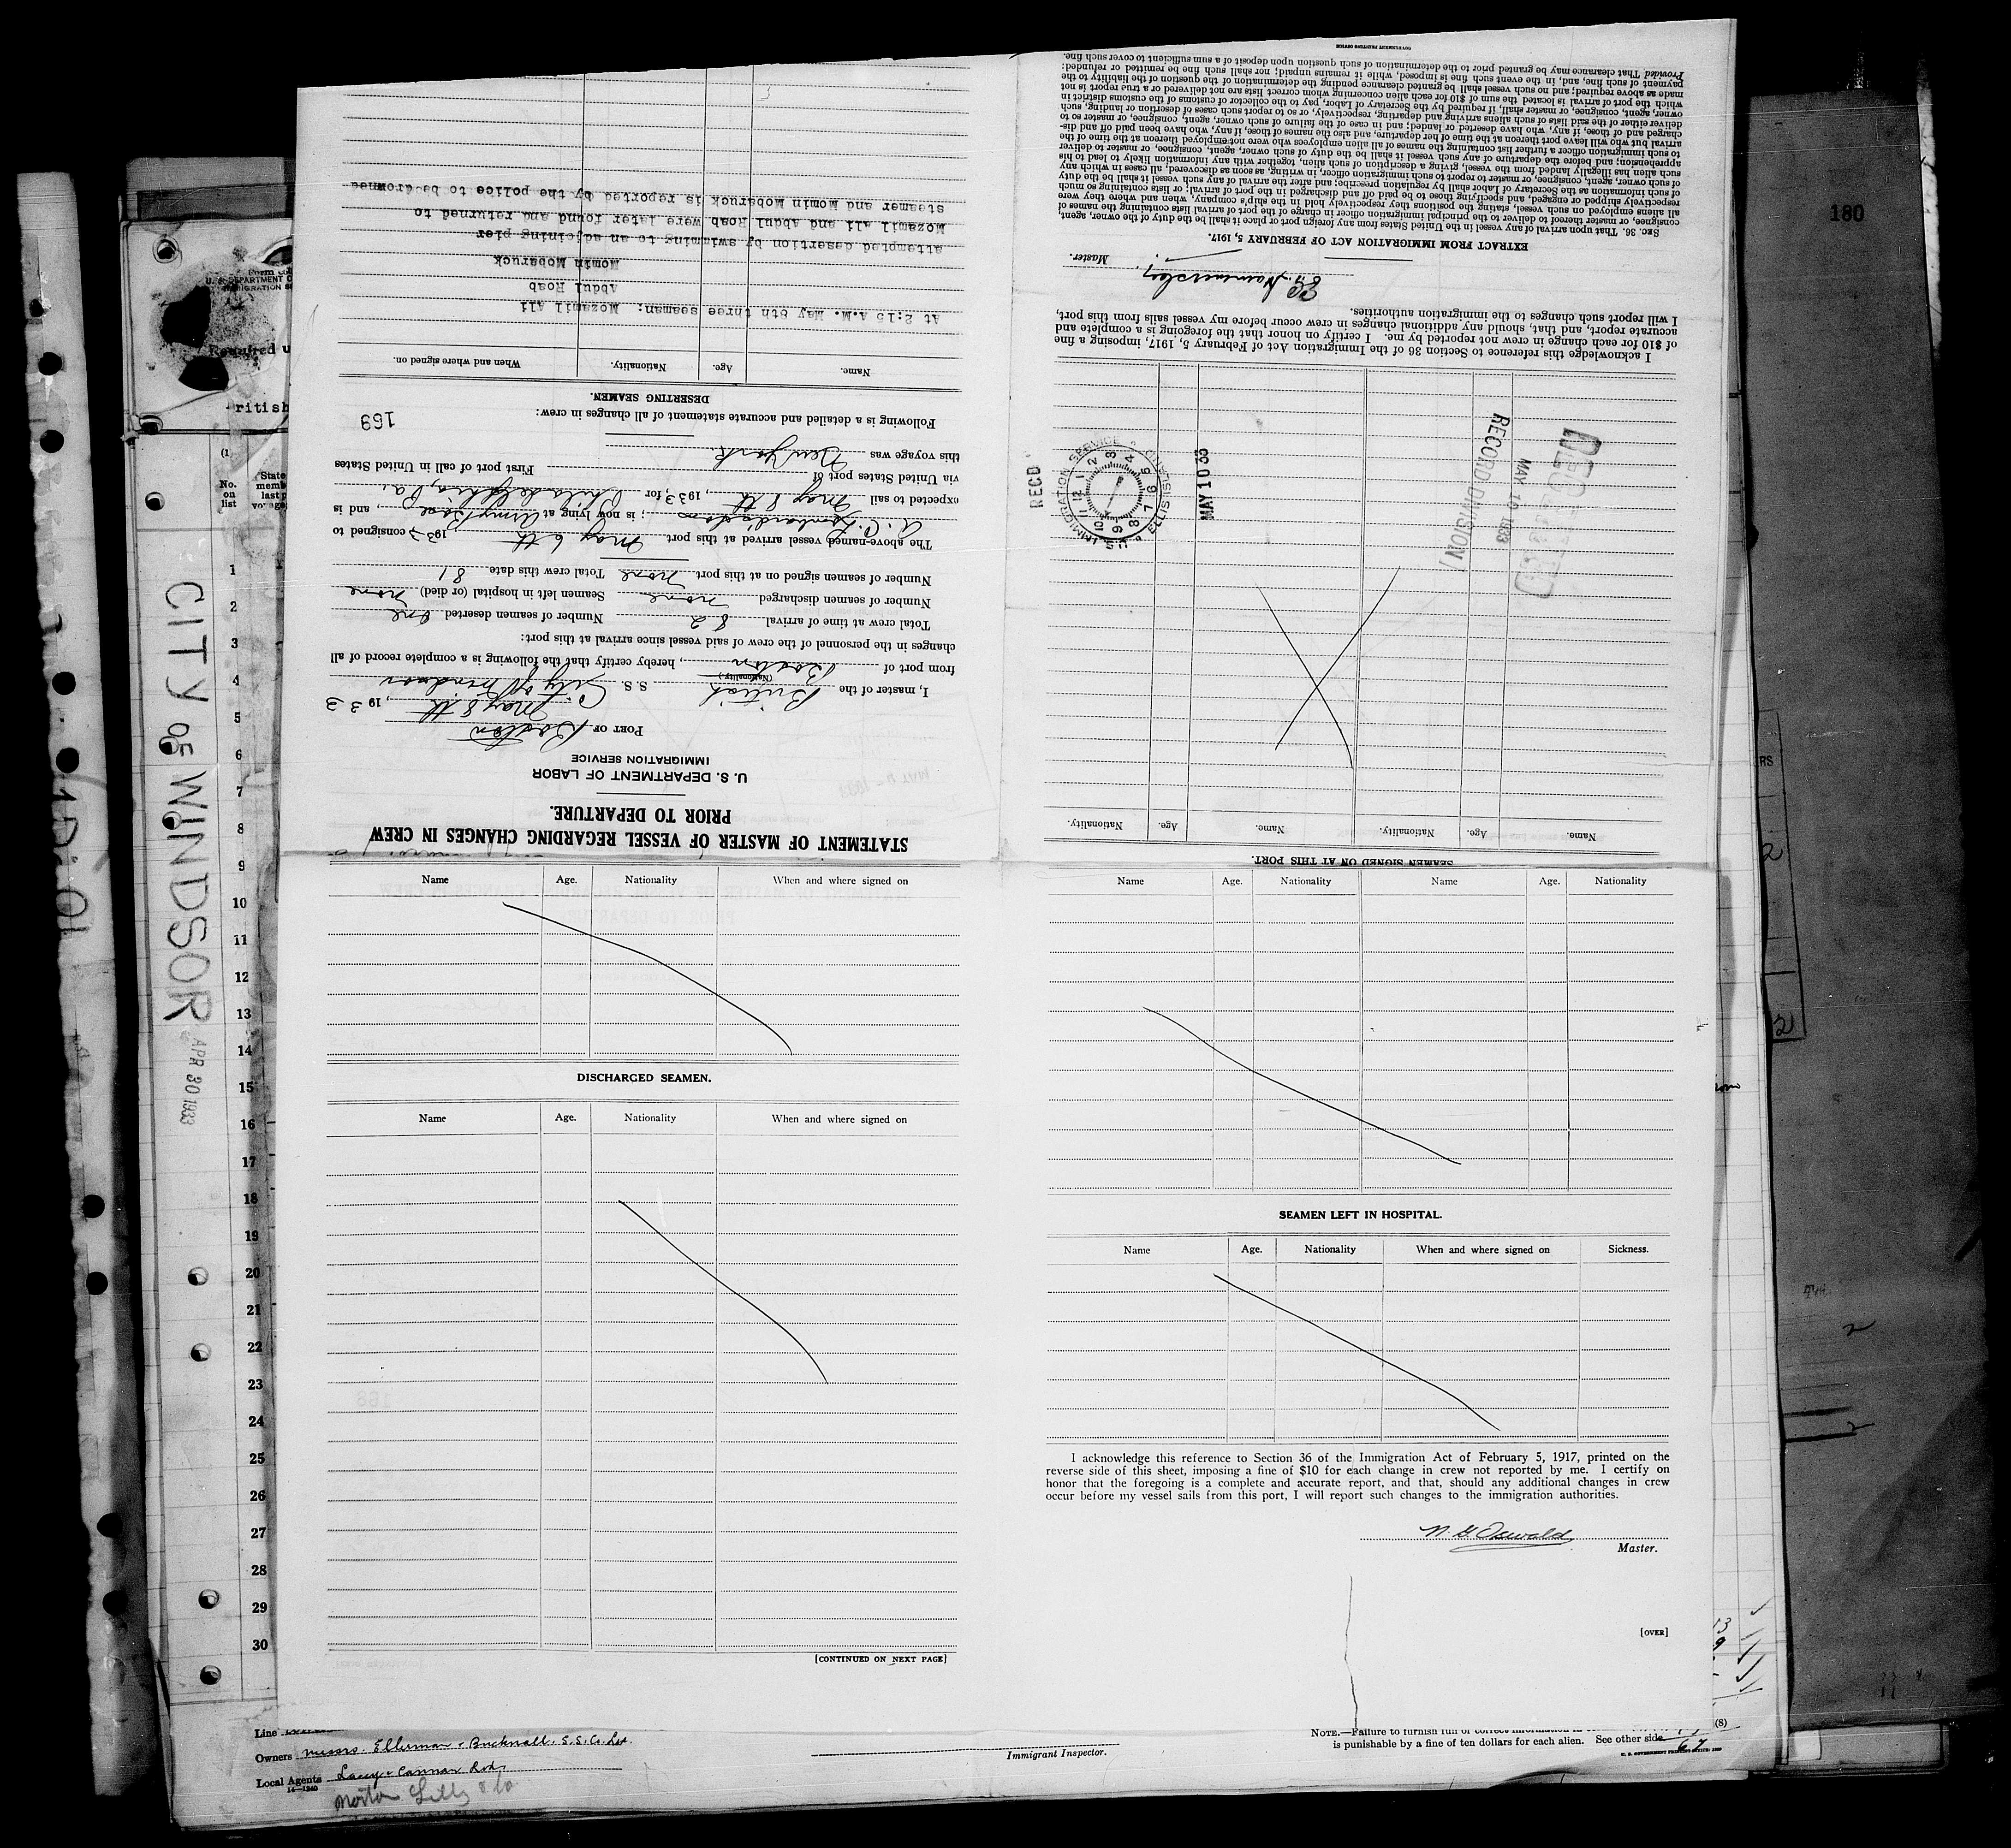 STATEMENT OF MASTER OF VESSEL REGARDING CHANGES IN CREW
PRIOR TO DEPARTURE.
U. S. DEPARTMENT OF LABOR
IMMIGRATION SERVICE
PORT OF Boston
May 8th, 1933
I, master of the British S. S. City of Windsor
(Nationality)
from port of Boston, hereby certify that the following is a complete record of all
changes in the personnel of the crew of said vessel since arrival at this port:
Total crew at time of arrival 82 Number of seamen deserted One
Number of seamen discharged none Seamen left in hospital (or died) none
Number of seamen signed on at this port none Total crew this date 81
The above-named vessel arrived at this port May 6th, 1933 consigned to
A. C. Lombard's Sons; is now lying at Army Base, and is
expected to sail May 8th, 1933, for Philadelphia, Pa.
via United States port of First port of call in United States
this voyage was New York.
Following is a detailed and accurate statement of all changes in crew:
169
DESERTING SEAMEN.
Name. Age. Nationality. When and where signed on.
At 2:15 A.M. May 8th three seamen: Mozamil Ali
Abdul Roab
Momin Mobaruck
attempted desertion by swimming to an adjoining pier
Mozamil Ali and Abdul Roab were later found and returned to
steamer and Momin Mobaruck is reported by the police to be drowned
SEAMEN SIGNED ON AT THIS PORT.
Name. Age. Nationality. Name. Age. Nationality.
RECORD DIVISION
MAY 10 1933
RECD
U.S. IMMIGRATION SERVICE ELLIS ISLAND
1 2 3 4 5 6 7 8 9 10 11 12
MAY 10 33
I acknowledge this reference to Section 36 of the Immigration Act of February 5, 1917, imposing a fine
of $10 for each change in crew not reported by me. I certify on honor that the foregoing is a complete and
accurate report, and that, should any additional changes in crew occur before my vessel sails from this port,
I will report such changes to the immigration authorities.
Hammersley
Master.
EXTRACT FROM IMMIGRATION ACT OF FEBRUARY 5, 1917.
SEC. 36. That upon arrival of any vessel in the United States from any foreign port or place it shall be the duty of the owner, agent,
consignee, or master thereof to deliver to the principal immigration officer in charge of the port of arrival lists containing the names of
all aliens employed on such vessel, stating the positions they respectively hold in the ship's company, when and where they were
respectively shipped or engaged, and specifying those to be paid off and discharged in the port of arrival; or lists containing so much
of such information as the Secretary of Labor shall by regulation prescribe; and after the arrival of any such vessel it shall be the duty
of such owner, agent, consignee, or master to report to such immigration officer, in writing, as soon as discovered, all cases in which any
such alien has illegally landed from the vessel, giving a description of such alien, together with any information likely to lead to his
apprehension; and before the departure of any such vessel it shall be the duty of such owner, agent, consignee, or master to deliver
to such immigration officer a further list containing the names of all alien employees who were not employed thereon at the time of the
arrival but who will leave port thereon at the time of her departure, and also the names of those, if any, who have been paid off and dis-
charged and of those, if any, who have deserted or landed; and in case of the failure of such owner, agent, consignee, or master so to
deliver either of the said lists of such aliens arriving and departing, respectively, or so to report such cases of desertion or landing, such
owner, agent, consignee, or master shall, if required by the Secretary of Labor, pay to the collector of customs of the customs district in
which the port of arrival is located the sum of $10 for each alien concerning whom correct lists are not delivered or a true report is not
made as above required; and no such vessel shall be granted clearance pending the determination of the question of the liability to the
payment of such fine, and, in the event such fine is imposed, while it remains unpaid; nor shall such fine be remitted or refunded:
Provided That clearance may be granted prior to the determination of such question upon deposit of a sum sufficient to cover such fine.
GOVERNMENT PRINTING OFFICE
Name Age. Nationality When and where signed on
DISCHARGED SEAMEN.
Name Age. Nationality When and where signed on
[CONTINUED ON NEXT PAGE]
Name Age. Nationality Name Age. Nationality
SEAMEN LEFT IN HOSPITAL.
Name Age. Nationality When and where signed on Sickness.
I acknowledge this reference to Section 36 of the Immigration Act of February 5, 1917, printed on the
reverse side of this sheet, imposing a fine of $10 for each change in crew not reported by me. I certify on
honor that the foregoing is a complete and accurate report, and that, should any additional changes in crew
occur before my vessel sails from this port, I will report such changes to the immigration authorities.
W. G. Oswald
Master.
[OVER]
CITY OF WINDSOR
APR 30 1933
Required u
ritish
(1)
No.
on
list
State
memb
last p
voyage
1
2
3
4
5
6
7
8
9
10
11
12
13
14
15
16
17
18
19
20
21
22
23
24
25
26
27
28
29
30
Line
Owners Messrs. Ellerman & Bucknall. S.S. Co. Ltd.
Local Agents Lacey & Cannan Ltd.
14—1240
Norton Lilly & Co
Immigrant Inspector.
NOTE.—Failure to furnish full or correct information
is punishable by a fine of ten dollars for each alien. See other side.
(8)
67
180